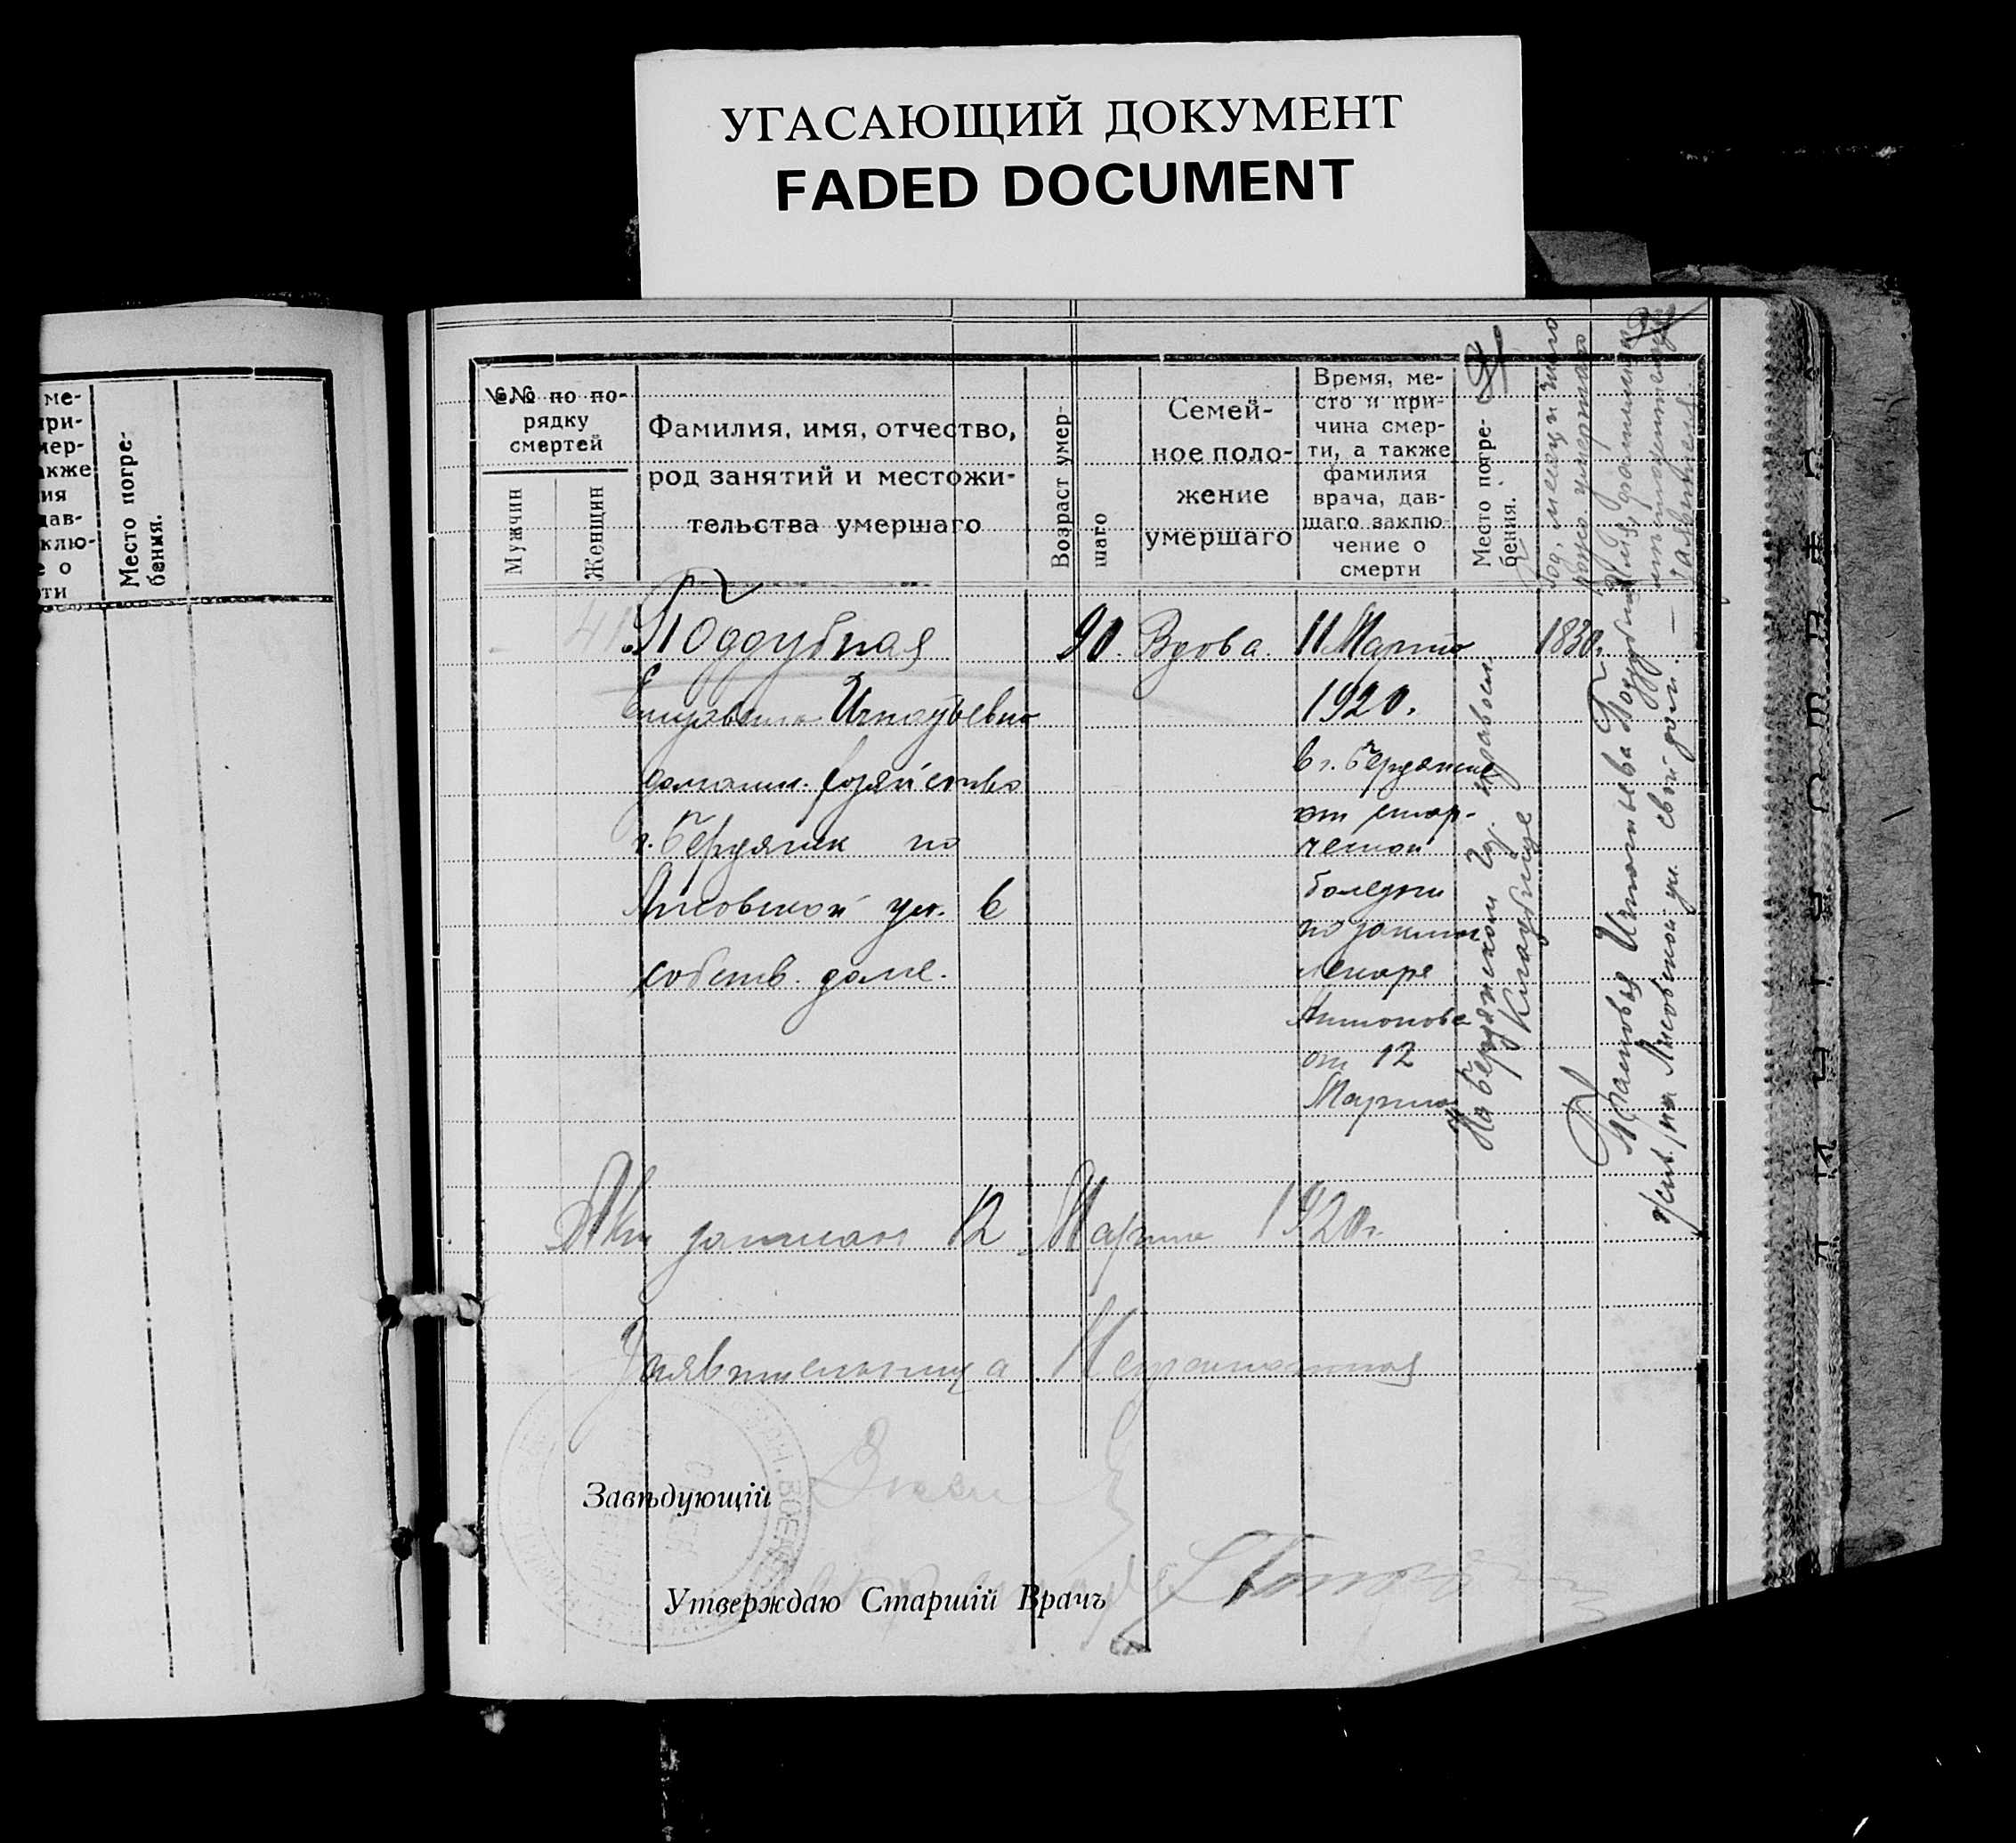 УГАСАЮЩИЙ ДОКУМЕНТ
FADED DOCUMENT
ме-
при-
мер-
акже
ия
дав-
клю-
е о
ти
Место погре-
бения.
№№ по по-
рядку
смертей
Мужчин
Женщин
Фамилия, имя, отчество,
род занятий и местожи-
тельства умершаго
Возраст умер-
шаго
Семей-
ное поло-
жение
умершаго
Время, ме-
сто и при-
чина смер-
ти, а также
фамилия
врача, дав-
шаго заклю-
чение о
смерти
Место погре-
бения.
Год, месяц и число
рожд. умершаго
41
Поддубная
Игнатьевна
домашн. хозяйство
г. Бердянск по
Лисовской ул. в
собств. доме.
90.
Вдова.
11 Марта
1920.
в г. Бердянске
от стар-
ческой
болезни
по записи
лекаря
Антонова
от 12
Марта
На Бердянском Гор. православн.
Кладбище
1830.
Поддубный
жит. Лисовской ул. свой дом. —
Акт записан 12 Марта 1920 г.
Заявительница Неграмотная
Завѣдующій
Утверждаю Старшій Врачъ